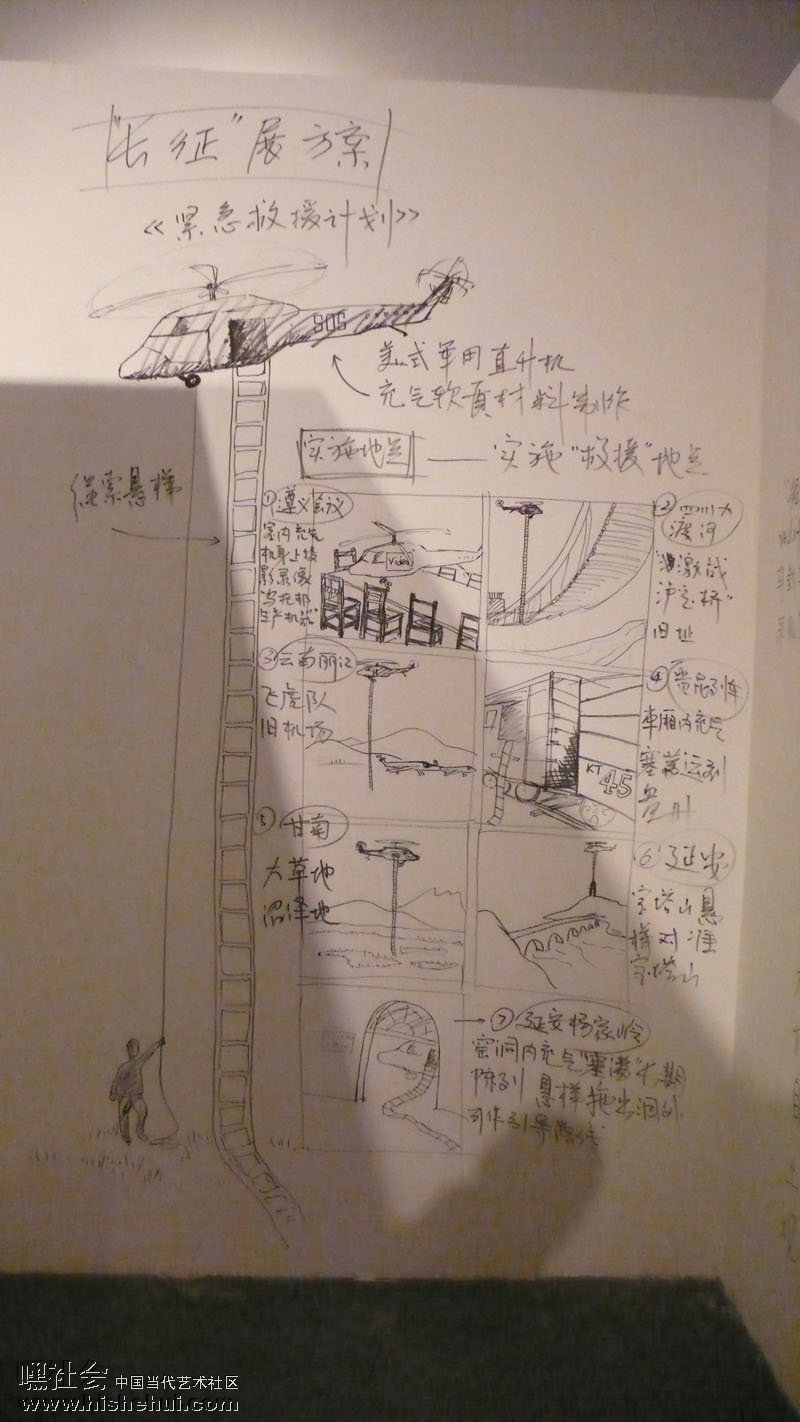 "长征"展方案
《紧急救援计划》
SOS
美式军用直升机
充气软质材料制作
实施地点——实施"救援"地点
绳索悬梯
①遵义会议
室内充气
机身上接
影录像
"乌托邦
生产机器"
Video
②四川大
渡河
激战
泸定桥"
旧址
③云南丽江
飞虎队
旧机场
④贵昆列车
车厢内充气
塞满运到
贵州
KT
45
⑤甘南
大草地
沼泽地
⑥延安
宝塔山悬
梯对准
宝塔山
⑦延安杨家岭
窑洞内充气"塞满"
陈列 悬梯拖出洞外
可作引导路线
嘿社会 中国当代艺术社区
www.hishehui.com